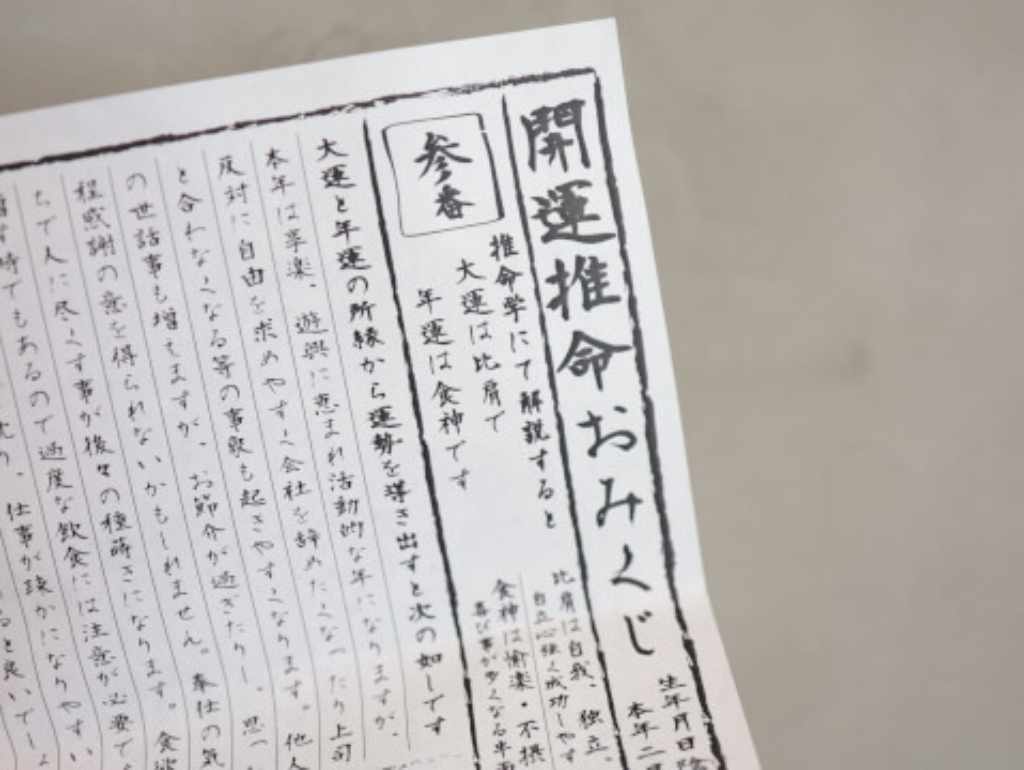 開運推命おみくじ
生年月日
本年二
参番
推命学にて解説すると
大運は比肩で
年運は食神です
比肩は自我、独立、
自立心強く成功しやす
食神は愉楽・不摂
喜び事が多くなる半面
大運と年運の所縁から運勢を導き出すと次の如しです
本年は享楽、遊興に恵まれ活動的な年になりますが、
反対に自由を求めやすく会社を辞めたくなったり上司
と合わなくなる等の事象も起きやすくなります。他人
の世話事も増えますが、お節介が過ぎたりし、思っ
程感謝の意を得られないかもしれません。奉仕の気
ちで人に尽くす事が後々の種蒔きになります。食
時でもあるので過度な飲食には注意が必要で
仕事が疎かになりやすい
ると良いでしょ